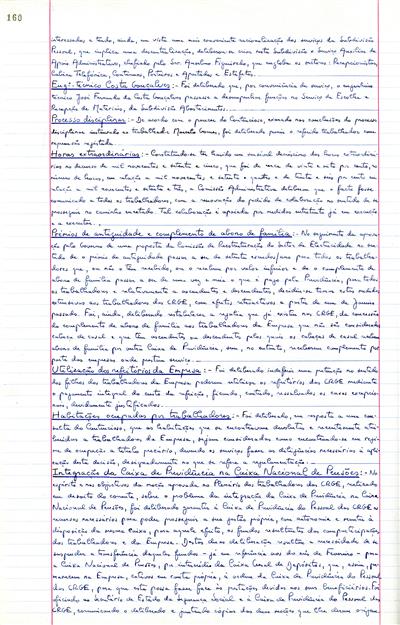 160
interessados e tendo, ainda, em vista uma mais conveniente racionalização dos serviços da Subdivisão
Pessoal, que implica uma descentralização, deliberou-se criar nesta Subdivisão o Serviço Auxiliar de
Apoio Administrativo, chefiado pelo Snr. Anselmo Figueiredo, que engloba os sectores: Recepcionistas,
Cabine Telefónica, Contínuos, Porteiros e
Engº técnico Costa Gonçalves:- Foi deliberado que, por conveniência de serviço, o engenheiro
técnico José Fernando da Costa Gonçalves passasse a desempenhar funções no Serviço de Escolha
e Recepção de Materiais, da Subdivisão Abastecimentos.
Processo disciplinar:- De acordo com o parecer do Contencioso, exarado nas conclusões do processo
disciplinar instaurado ao trabalhador foi deliberado punir o referido trabalhador com
repreensão registada.
Horas extraordinárias:- Constatando-se ter havido um sensível decréscimo das horas extraordiná-
rias no decurso de mil novecentos e setenta e cinco, que foi de cerca de vinte e oito por cento, no
número de horas, em relação a mil novecentos e setenta e quatro e de trinta e seis por cento em
relação a mil novecentos e setenta e três, a Comissão Administrativa deliberou que o facto fosse
comunicado a todos os trabalhadores, com a renovação do pedido de colaboração no sentido de se
prosseguir no caminho encetado. Tal colaboração é apoiada por medidas entretanto já em execução
Prémios de antiguidade e complemento de abono de família:- No seguimento da aprova-
ção pelo Governo de uma proposta da Comissão de Reestruturação do Sector da Electricidade no sen-
tido de o prémio de antiguidade passar a ser de setenta escudos/ano para todos os trabalha-
dores que, ou não o tenham recebido, ou o recebam por valor inferior e de o complemento de
abono de família passar a ser de uma vez e meia o que é pago pela Previdência, para todos
os trabalhadores e relativamente a ascendentes e descendentes, decidiu-se tornar esta medida
extensiva aos trabalhadores das CRGE, com efeitos retroactivos a partir de um de Janeiro
passado. Foi, ainda, deliberado estabelecer a regalia que já existia nas CRGE, da concessão
do complemento de abono de família aos trabalhadores da Empresa que não são considerados
cabeças de casal e que têm ascendentes ou descendentes pelos quais os cabeças de casal recebem
abono de família por outra Caixa de Previdência, sem, no entanto, receberem complemento por
parte das empresas onde prestam serviço.
Utilização dos refeitórios da Empresa:- Foi deliberado indeferir uma petição no sentido
dos filhos dos trabalhadores da Empresa poderem utilizar os refeitórios das CRGE mediante
o pagamento integral do custo da refeição, ficando, contudo, ressalvados os casos excepcio-
nais, devidamente justificados.
Habitações ocupadas por trabalhadores:- Foi deliberado, em resposta a uma con-
sulta do Contencioso, que as habitações que se encontravam devolutas e recentemente atri-
buídas a trabalhadores da Empresa, sejam consideradas como encontrando-se em regi-
me de ocupação a título precário, devendo os serviços fazer as diligências necessárias à apli-
cação desta decisão, designadamente no que se refere à regulamentação.
Integração da Caixa de Previdência na Caixa Nacional de Pensões:- No
espírito e nos objectivos da moção aprovada no Plenário dos trabalhadores das CRGE, realizado
em de corrente, sobre o problema da integração da Caixa de Previdência na Caixa
Nacional de Pensões, foi deliberado garantir à Caixa de Previdência do Pessoal das CRGE os
recursos necessários para poder prosseguir a sua gestão própria, com autonomia e pronta à
disposição da mesma caixa, para aquele efeito, os fundos resultantes das comparticipações
dos trabalhadores e da Empresa. Desta deliberação resulta a necessidade de se
suspender a transferência daqueles fundos - já em referência aos do mês de Fevereiro - para
a Caixa Nacional de Pensões, por intermédio da Caixa Geral de Depósitos, que, assim, per-
manecem na Empresa, cativos em conta própria, à ordem da Caixa de Previdência do Pessoal
das CRGE, para que esta possa fazer face às prestações devidas aos seus beneficiários. Foi
oficiado ao Secretário de Estado da Segurança Social e à Caixa de Previdência do Pessoal das
CRGE, comunicando o deliberado e juntando cópias das duas moções que lhe deram origem.